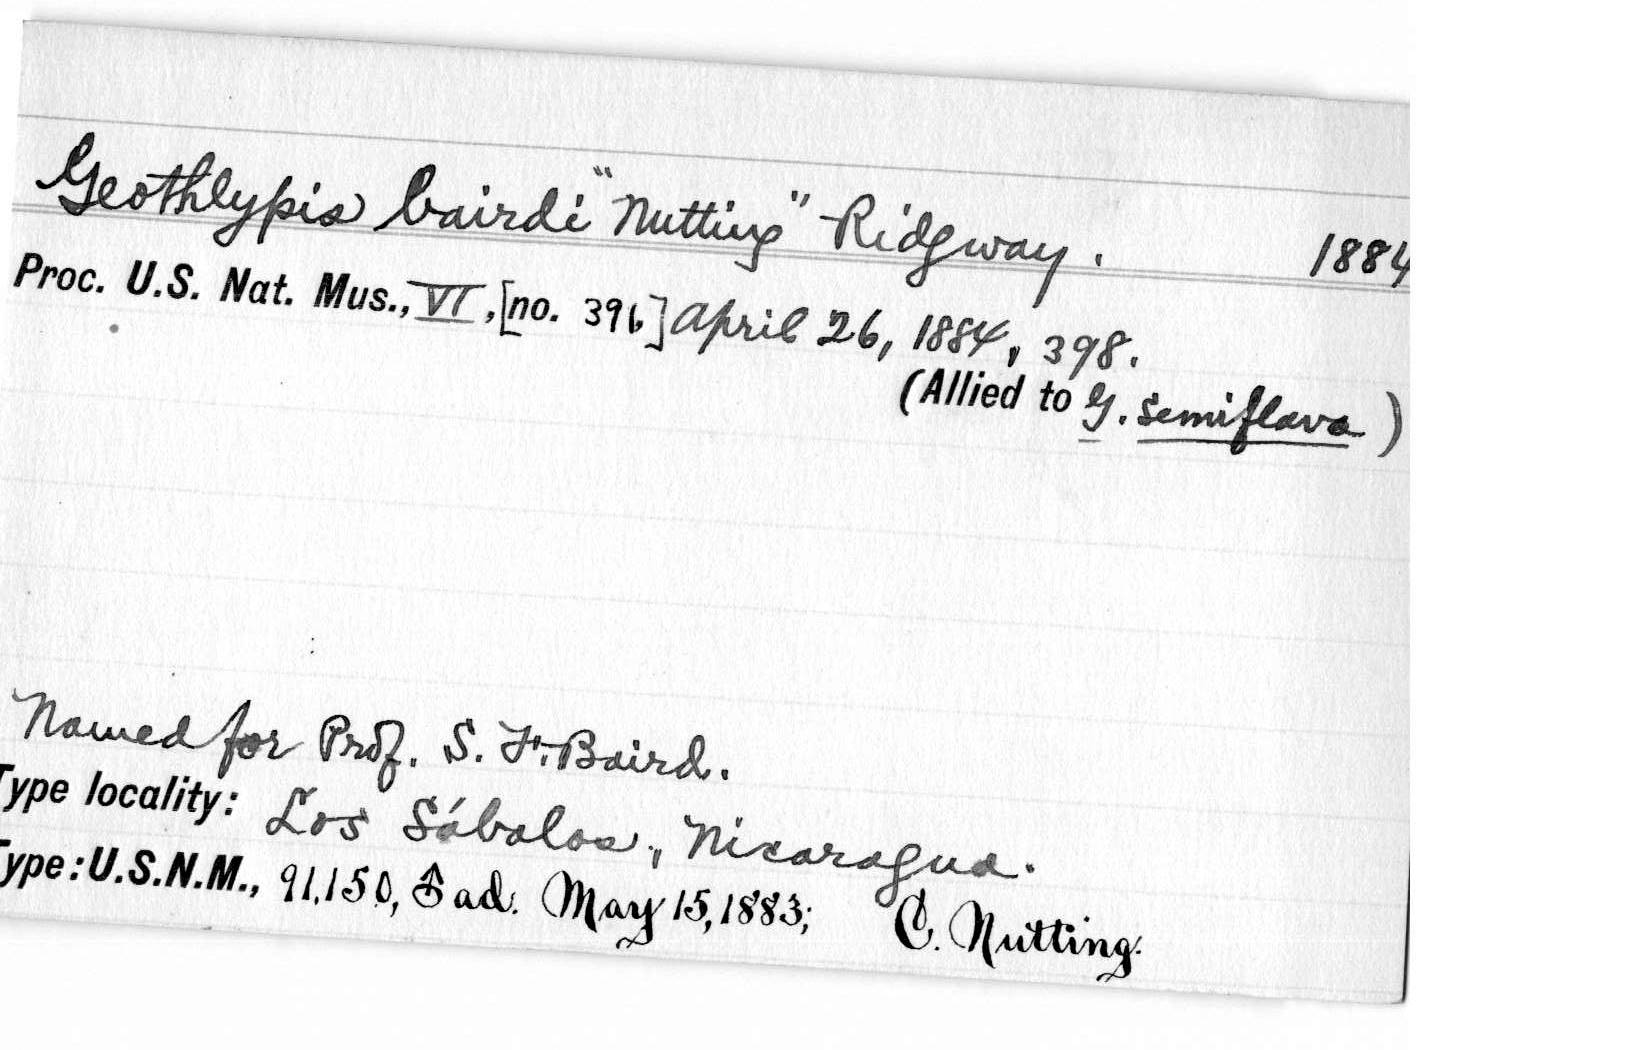 Geothlypis bairdi "Nutting" Ridgway. 1884
Proc. U.S. Nat. Mus., VI, [no. 396] April 26, 1884, 398.
(Allied to G. semiflava)
Named for Prof. S. F. Baird.
Type locality: Los Sábalos, Nicaragua.
Type: U.S.N.M., 91,150, ♂ ad. May 15, 1883; C. Nutting.